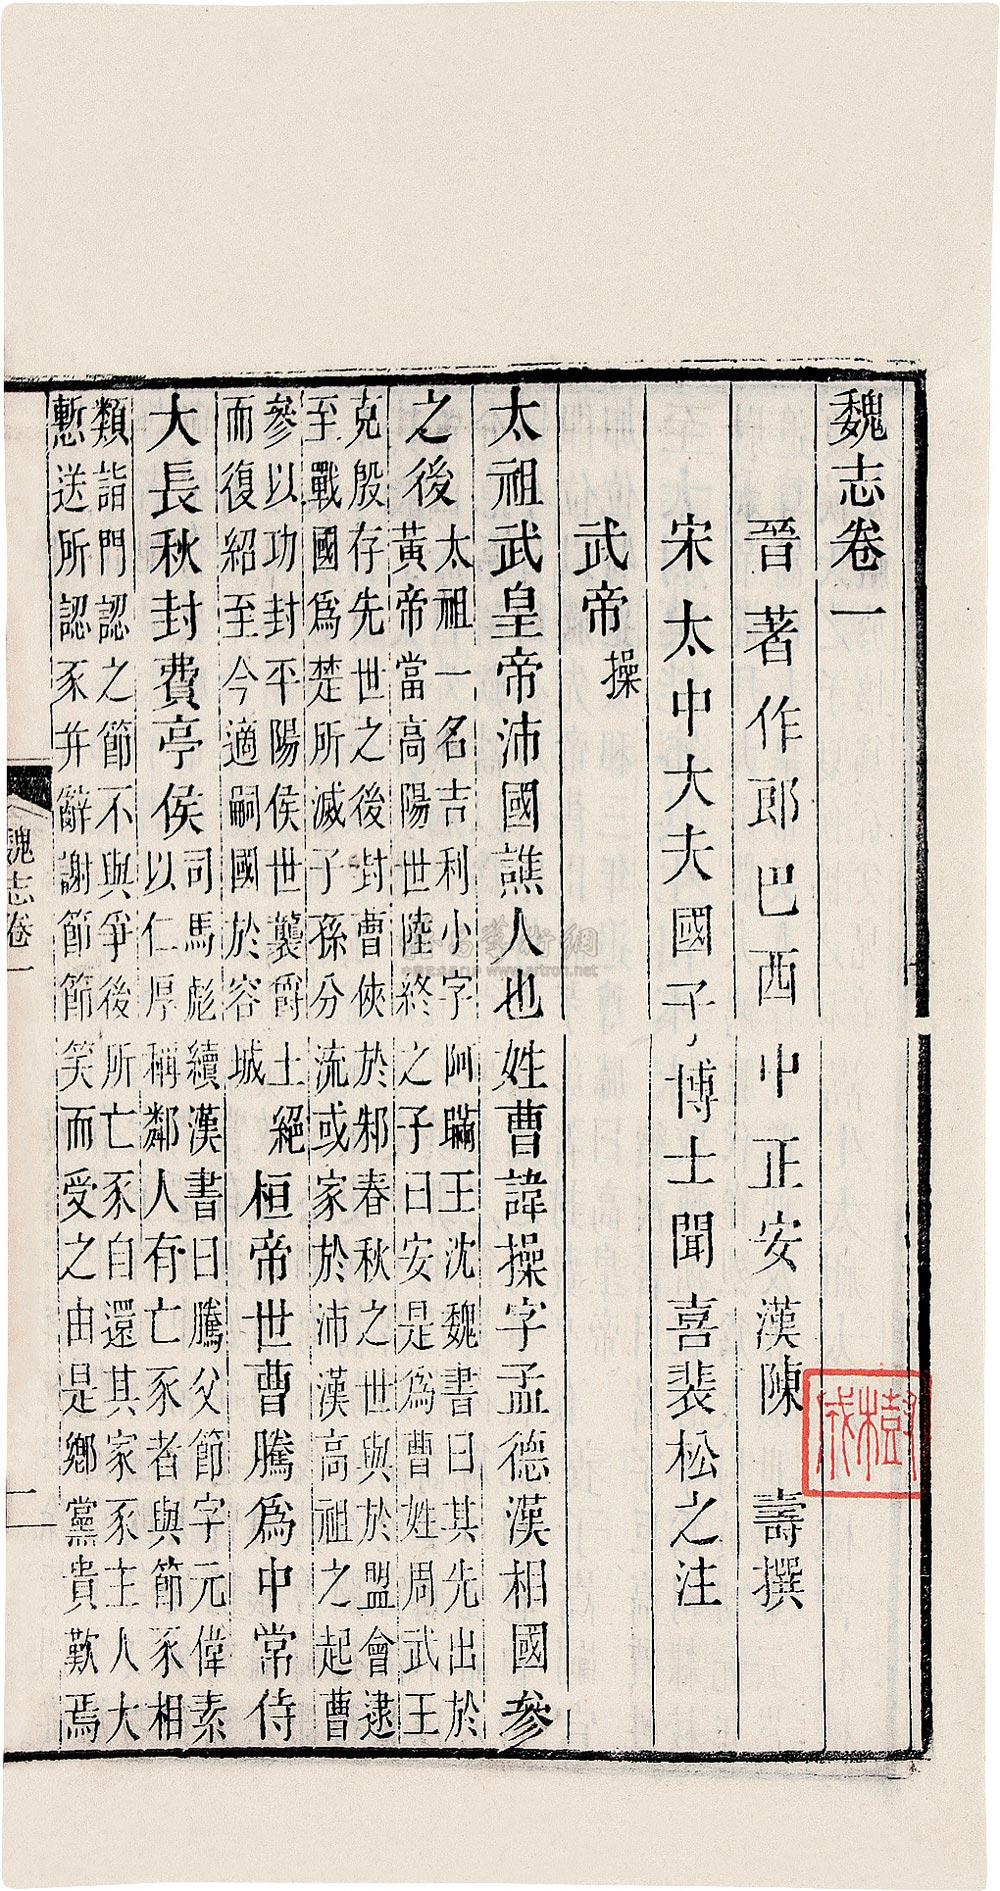 魏志卷一
晉著作郎巴西中正安漢陳壽撰
宋太中大夫國子博士聞喜裴松之注
武帝操
太祖武皇帝沛國譙人也姓曹諱操字孟德漢相國參
之後
太祖一名吉利小字阿瞞王沈魏書曰其先出於
黃帝當高陽世陸終之子曰安是爲曹姓周武王
克殷存先世之後封曹俠於邾春秋之世與於盟會逮
至戰國爲楚所滅子孫分流或家於沛漢高祖之起曹
參以功封平陽侯世襲爵土絕
而復紹至今適嗣國於容城
桓帝世曹騰爲中常侍
大長秋封費亭侯
司馬彪續漢書曰騰父節字元偉素
以仁厚稱鄰人有亡豕者與節豕相
類詣門認之節不與爭後所亡豕自還其家豕主人大
慙送所認豕幷辭謝節節笑而受之由是鄉黨貴歎焉
魏志卷一
www.artron.net